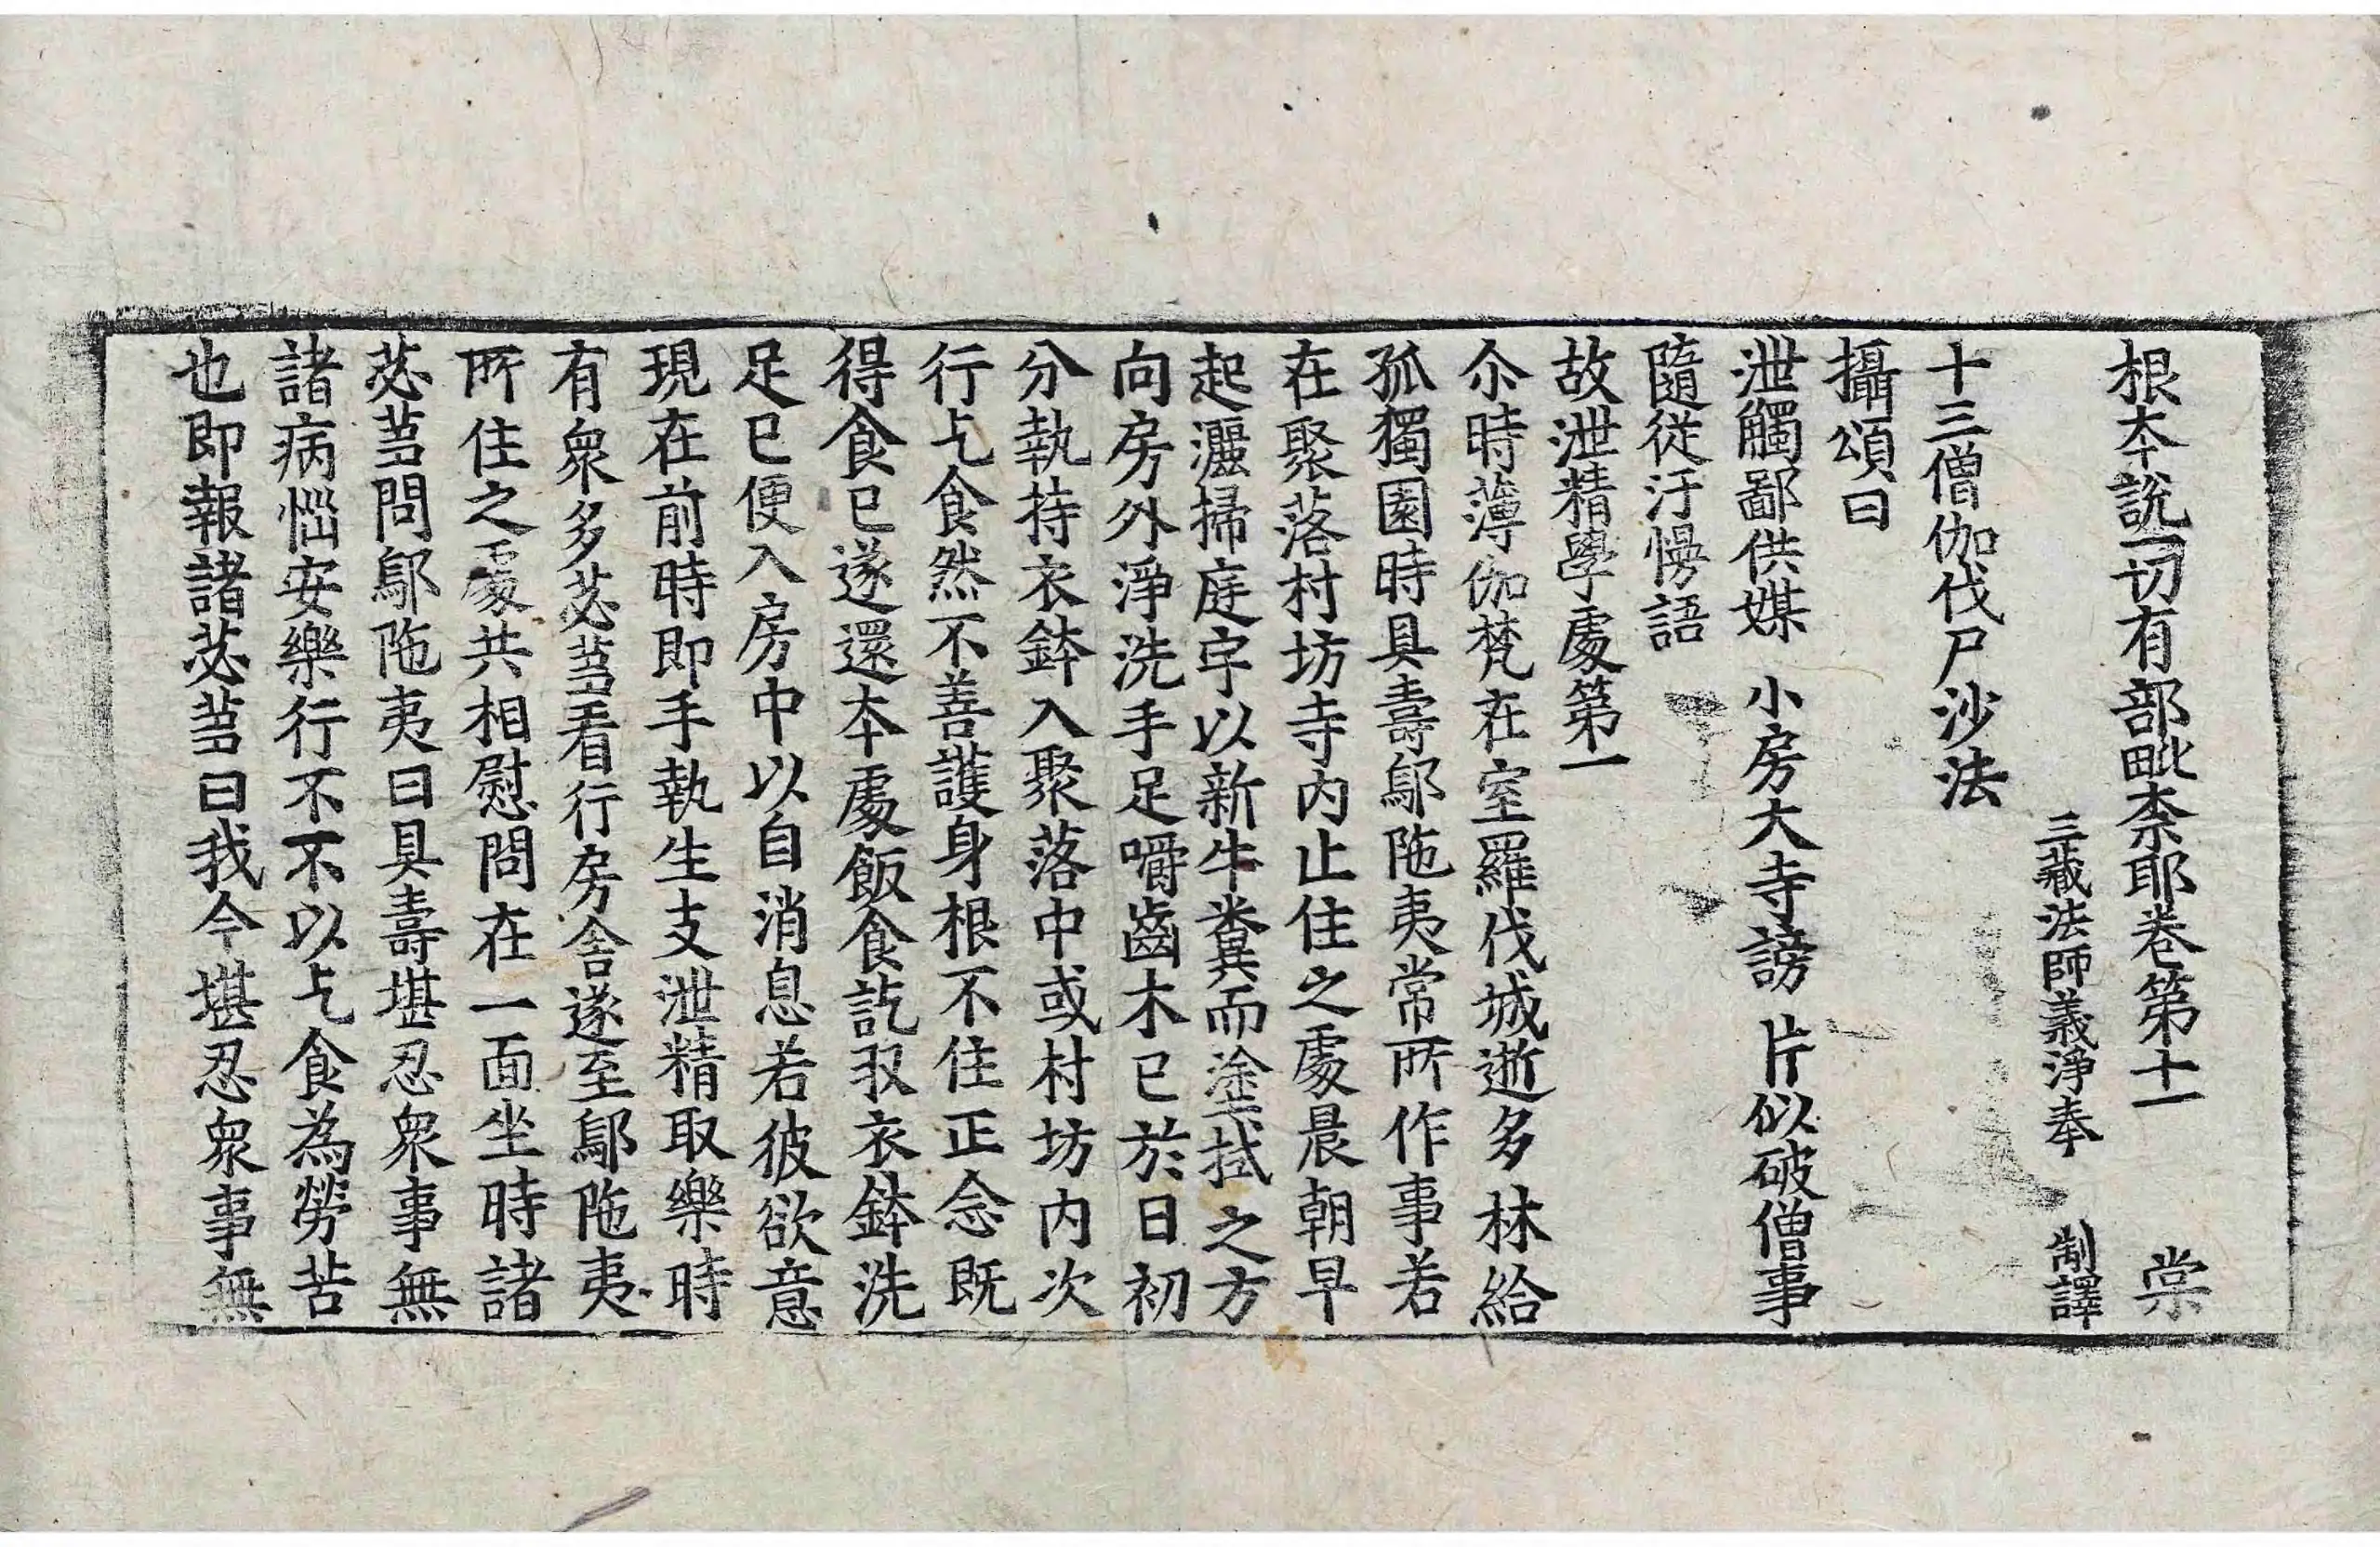 根本說一切有部毗柰耶卷第十一 棠
三藏法師義淨奉 制譯
十三僧伽伐尸沙法
攝頌曰
泄觸鄙供媒 小房大寺謗 片似破僧事
隨從汙慢語
故泄精學處第一
尒時薄伽梵在室羅伐城逝多林給
孤獨園時具壽鄔陁夷常所作事若
在聚落村坊寺內止住之處晨朝早
起灑掃庭宇以新牛糞而塗拭之方
向房外淨洗手足嚼齒木已於日初
分執持衣鉢入聚落中或村坊內次
行乞食然不善護身根不住正念既
得食已遂還本處飯食訖収衣鉢洗
足已便入房中以自消息若彼欲意
現在前時即手執生支泄精取樂時
有衆多苾芻看行房舍遂至鄔陁夷
所住之處共相慰問在一面坐時諸
苾芻問鄔陁夷曰具壽堪忍衆事無
諸病惱安樂行不不以乞食為勞苦
也即報諸苾芻曰我今堪忍衆事無